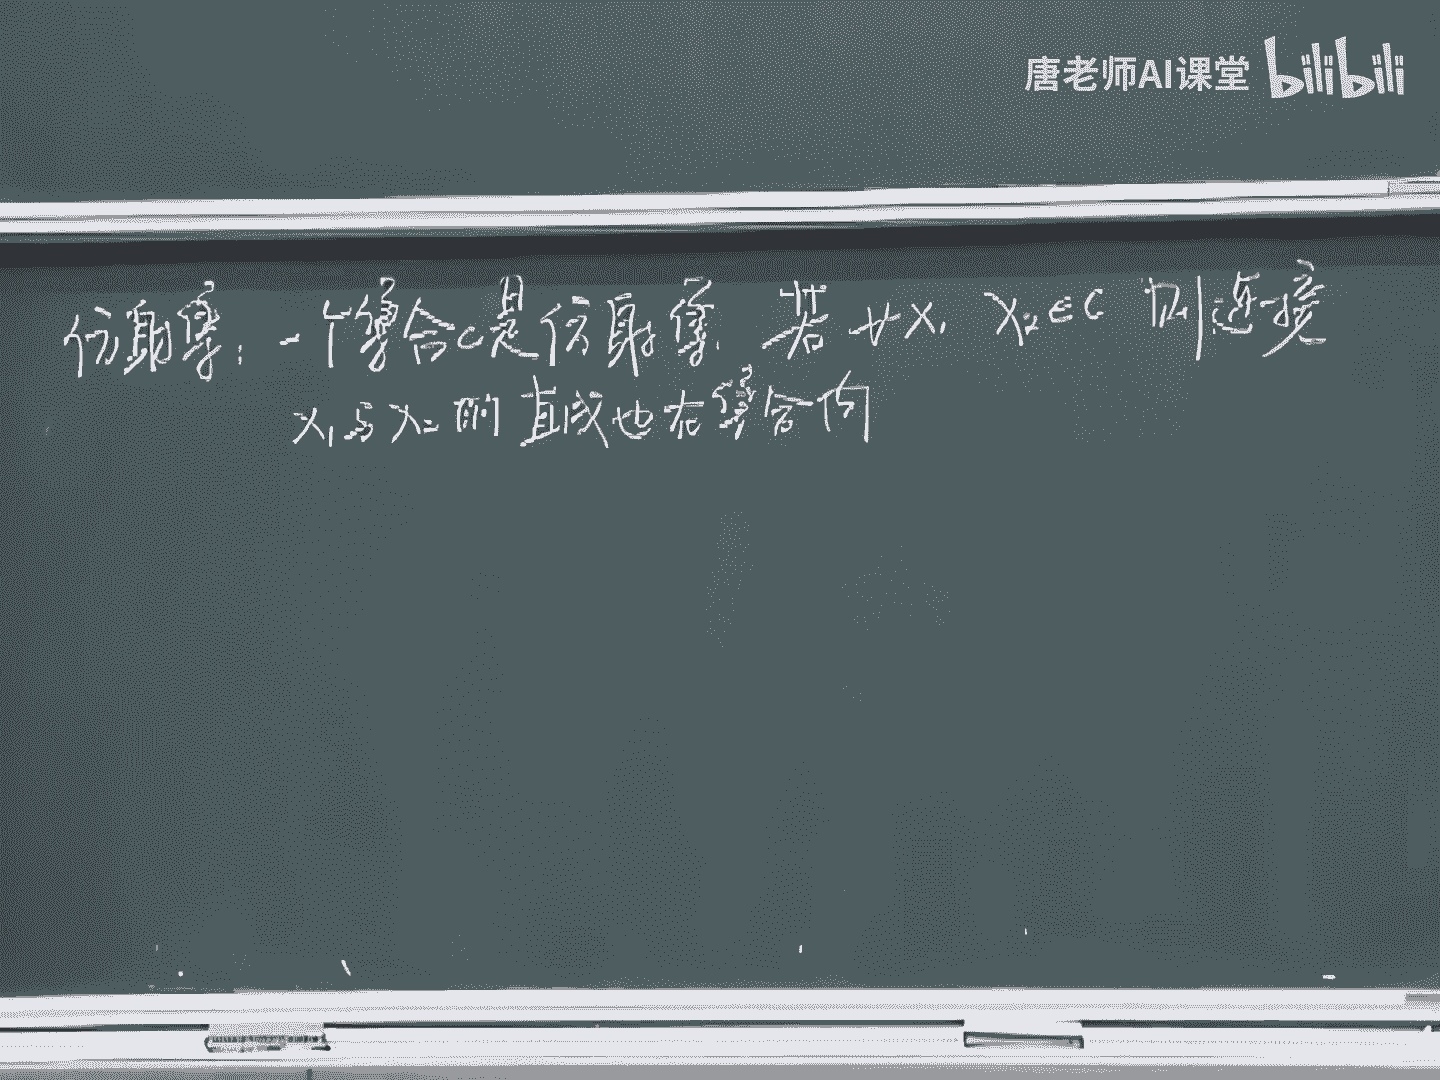 唐老师AI课堂 bilibili
仿射集：一个集合C是仿射集，若 ∀X₁ X₂∈C 则连接
X₁与X₂的直线也在集合内